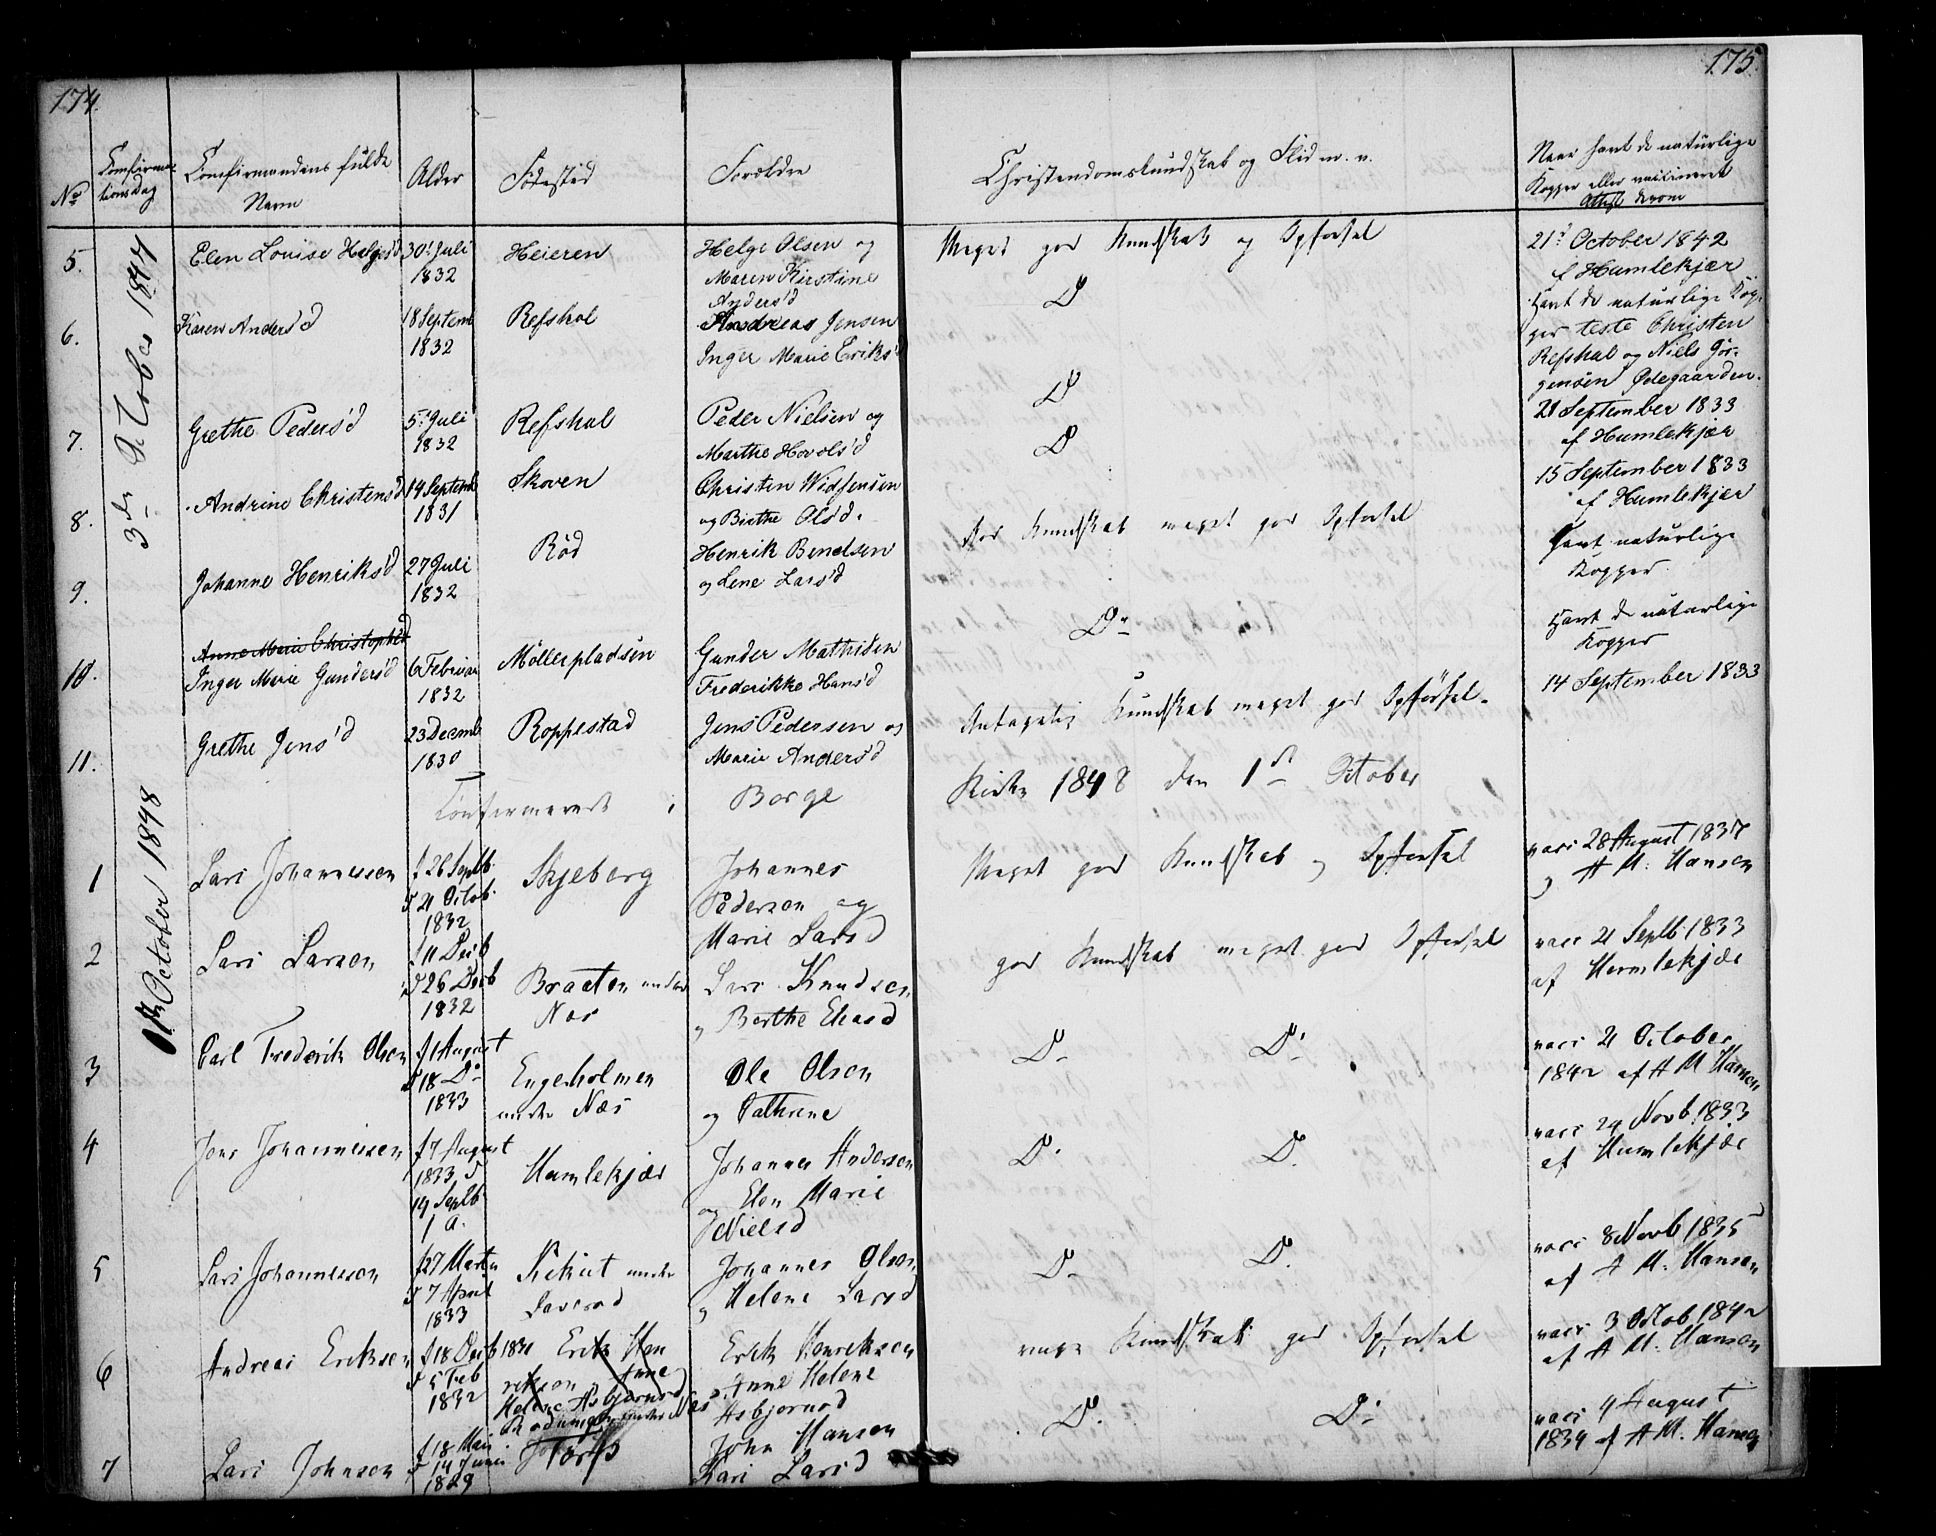 174.
175.
No
Confirmationsdag
Confirmandens fulde Navn
Alder
Fødested
Forældre
Christendomskundskab og Flid m. v.
Naar havt de naturlige
Kopper eller vaccineret
Attest derom
3die October 1847
5.
Elen Louise Helgesd
30t Juli
1832
Heieren
Helge Olsen og
Maren Kirstine
Andersd
Meget god Kundskab og Opførsel
21d October 1842
af Humlekjær
6.
Karen Andersd
18 Septemb
1832
Refshol
Andreas Jensen
Inger Marie Eriksd
Do
Havt de naturlige Kop-
per teste Christen
Refshal og Niels Jør-
gensen Ødegaarden.
7.
Grethe Pedersd
5t Juli
1832
Refshal
Peder Nielsen og
Marthe
Do
21 September 1833
af Humlekjær
8.
Andrine Christensd
14 Septemb
1831
Skoven
Christen
og Birthe Olsd.
Do
15 September 1833
af Humlekjær
9.
Johanne Henriksd
27 Juli
1832
Rød
Henrik Bendtsen
og Lene Larsd
God Kundskab meget god Opførsel
Havt naturlige
Kopper
10.
Anne Marie Christophersd
Inger Marie Gundersd
6 Februar
1832
Møllerpladsen
Gunder Mathisen
Frederikke Hansd
Do
Havt de naturlige
Kopper
11.
Grethe Jensd
23 Decemb
1830
Roppestad
Jens Pedersen og
Marie Andersd
Antagelig Kundskab meget god Opførsel.
14 September 1833
Confirmerede i Borge Kirke 1848 den 1st October
1st October 1848
1
Lars Johannessen
f 26 Septb
d 21 Octob
1832
Skjeberg
Johannes
Pedersen og
Marie Larsd
Meget god Kundskab og Opførsel
vacc 28 August 1837
A M. Hansen
2
Lars Larsen
f 11 Decb
d 26 Decb
1832
Braaten under
Næs
Lars Knudsen
og Berthe Eliasd
god Kundskab meget god Opførsel
vacc 21 Septb 1833
af Humlekjæ
3
Carl Frederik Olsen
f 1 August
d 18 Do
1833
Engeholmen
under Næs
Ole Olsen
og Cathrine
Do Do
vacc 21 October
1842 af A M Hansen
4
Jens Johannessen
f 7 August
1833 d
14 Septb
1 A.
Humlekjær
Johannes Andersen
og Elen Marie
Nielsd
D. D.
vacc 24 Novb 1833
af Humlekjæ
5
Lars Johannessen
f 27 Marts
d 7 April
1833
Kikut under
Johannes Olsen
og Helene Larsd
D. D.
vacc 8 Novb 1835
af A M. Hansen
6
Andreas Eriksen
f 18 Decb 1831
d 5 Feb
1832
Erik Hen
riksen Anne
Helene Asbjørnsd
under Næs
Erik Henriksen
Anne Helene
Asbjørnsd
Kundskab god Opførsel
vacc 3 Octob 1842
af A M. Hansen
7
Lars Johnsen
f 18 Mai
d 14 Juni
1829
Torp
John Hansen
Kari Larsd
D. Do
vacc 4 August
1834 af A M. Hansen